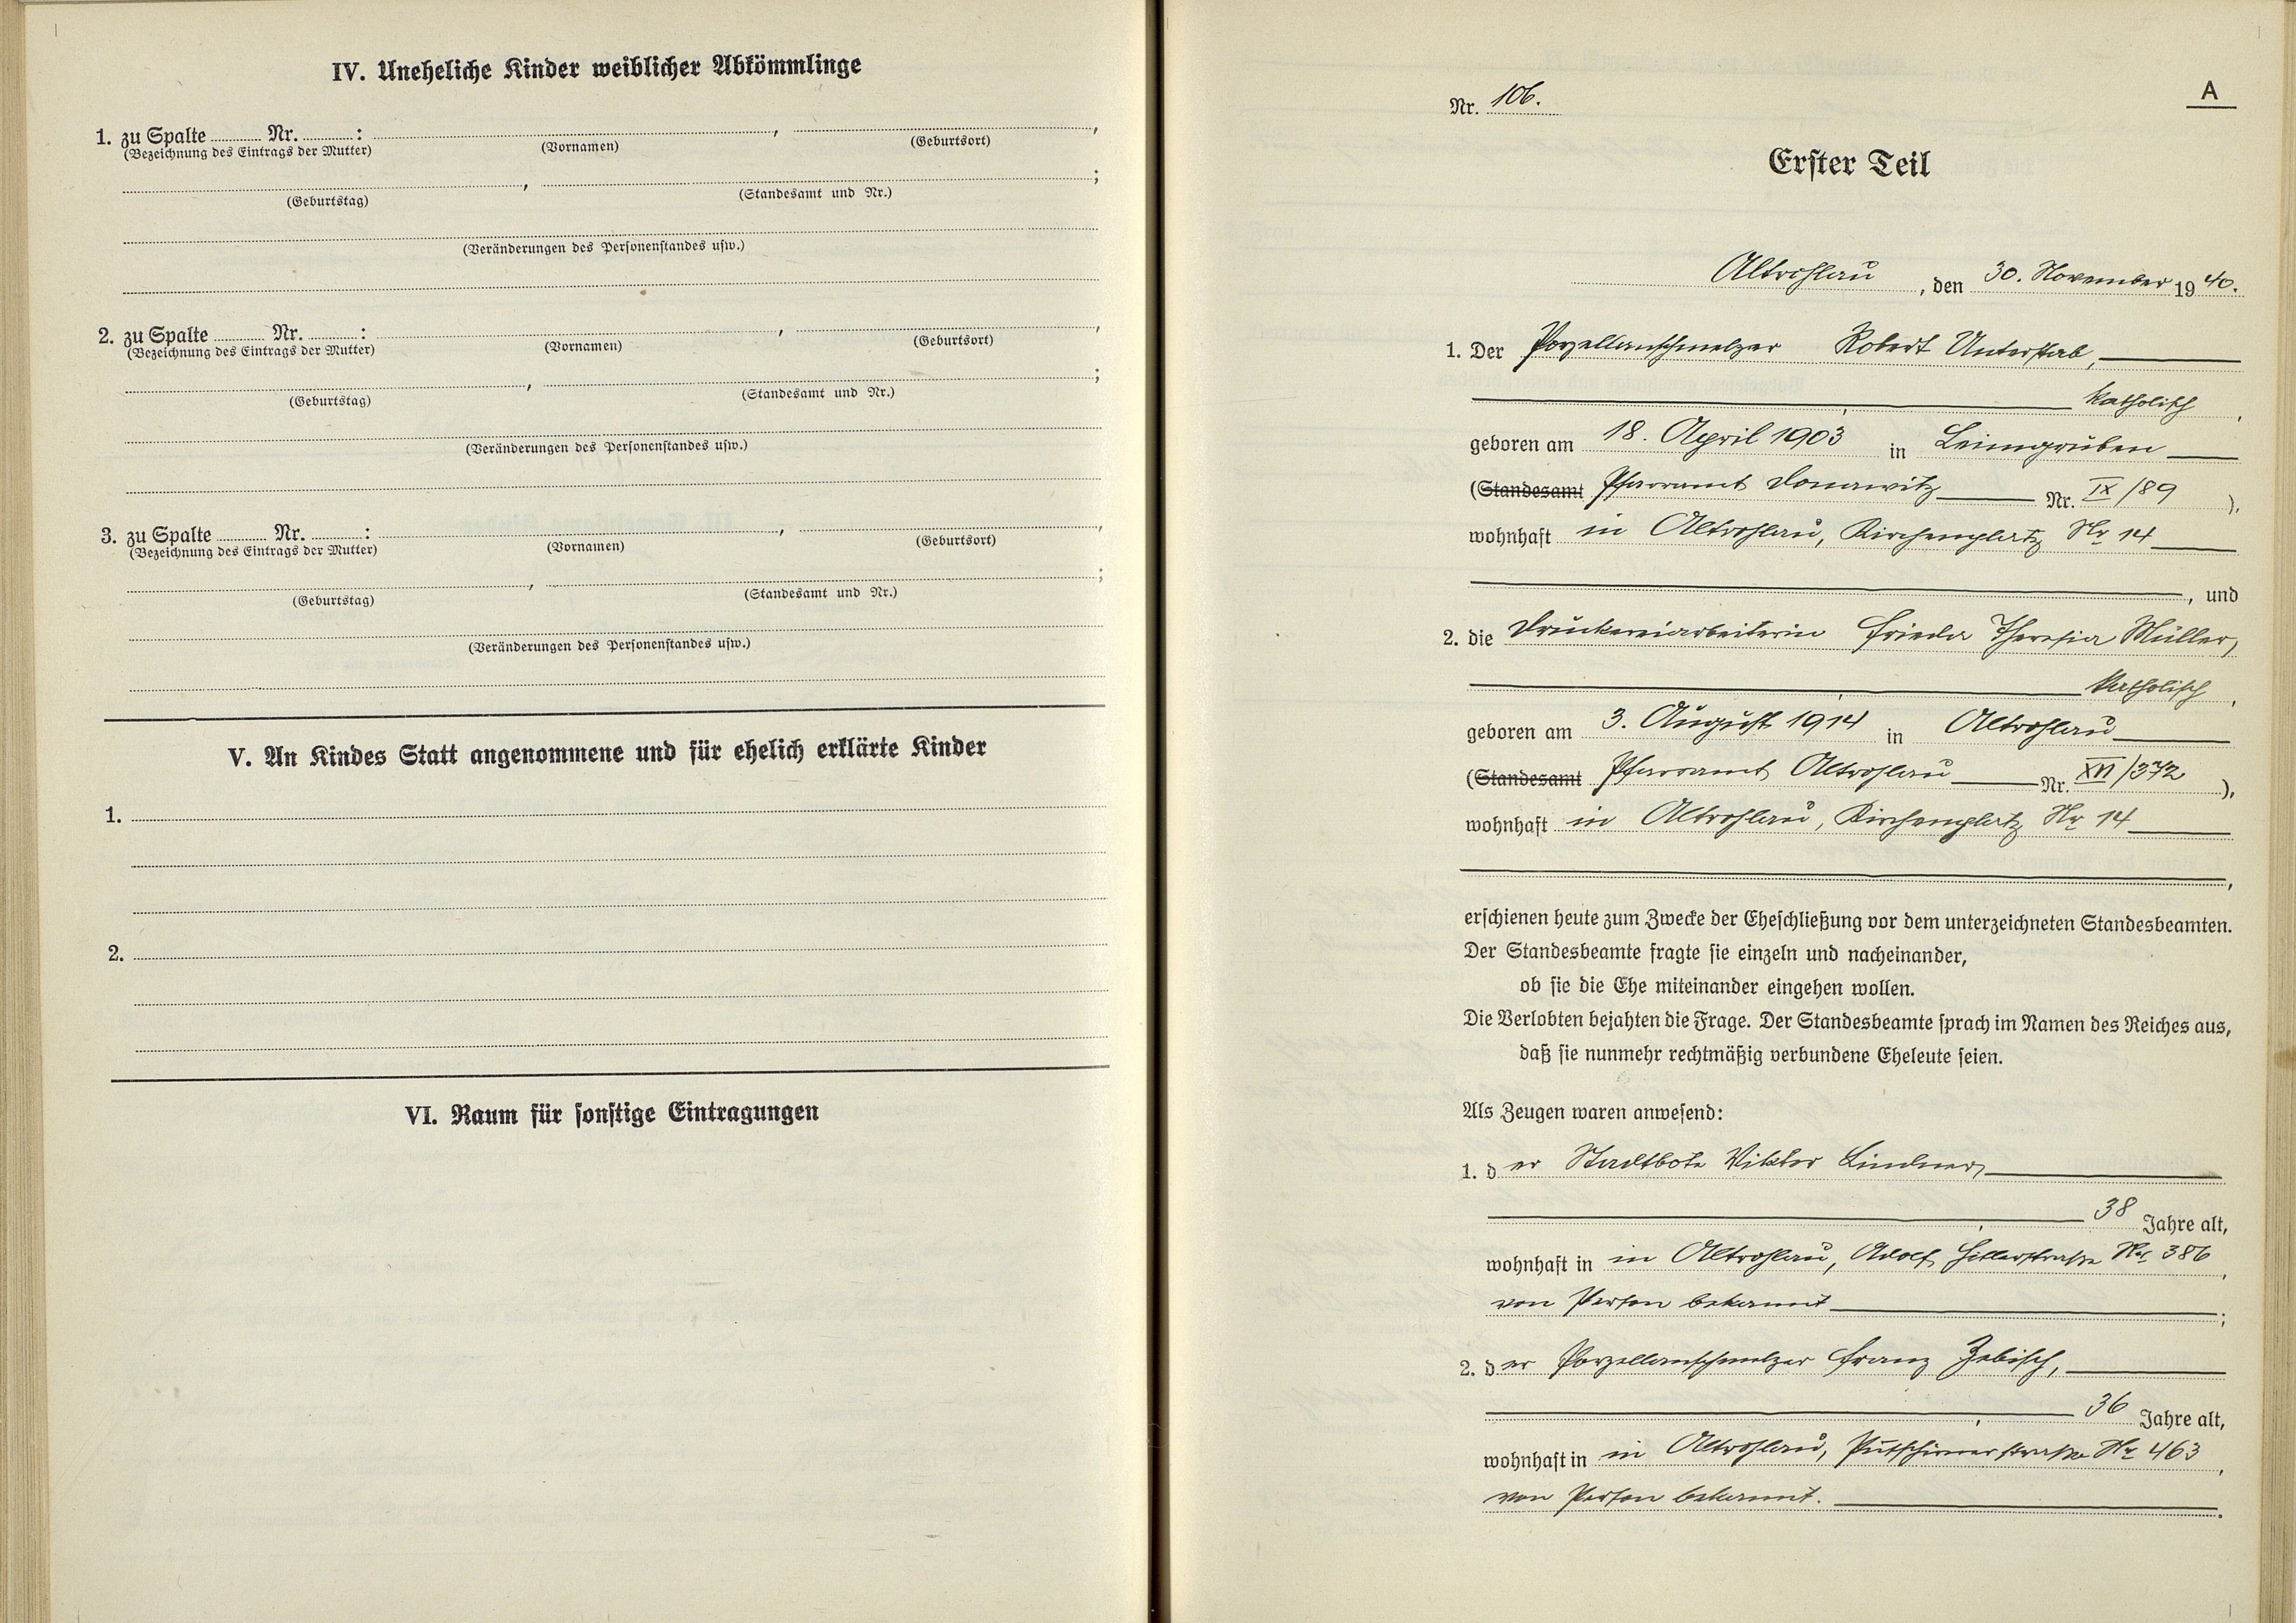 IV. Uneheliche Kinder weiblicher Abkömmlinge
1. zu Spalte ........ Nr. ........ : , ,
(Bezeichnung des Eintrags der Mutter) (Vornamen) (Geburtsort)
, ;
(Geburtstag) (Standesamt und Nr.)
(Veränderungen des Personenstandes usw.)
2. zu Spalte ........ Nr. ........ : , ,
(Bezeichnung des Eintrags der Mutter) (Vornamen) (Geburtsort)
, ;
(Geburtstag) (Standesamt und Nr.)
(Veränderungen des Personenstandes usw.)
3. zu Spalte ........ Nr. ........ : , ,
(Bezeichnung des Eintrags der Mutter) (Vornamen) (Geburtsort)
, ;
(Geburtstag) (Standesamt und Nr.)
(Veränderungen des Personenstandes usw.)
V. An Kindes Statt angenommene und für ehelich erklärte Kinder
1.
2.
VI. Raum für sonstige Eintragungen
A
Nr. 106.
Erster Teil
Altrohlau, den 30. November 1940.
1. Der Porzellanschmelzer Robert Unterstab,
katholisch,
geboren am 18. April 1903 in Leimgruben
(Standesamt Pfarramt Donawitz Nr. IX/89),
wohnhaft in Altrohlau, Kirchenplatz Nr 14
, und
2. die Druckereiarbeiterin Frieda Theresia Müller,
katholisch,
geboren am 3. August 1914 in Altrohlau
(Standesamt Pfarramt Altrohlau Nr. XVI/372),
wohnhaft in Altrohlau, Kirchenplatz Nr 14
,
erschienen heute zum Zwecke der Eheschließung vor dem unterzeichneten Standesbeamten.
Der Standesbeamte fragte sie einzeln und nacheinander,
ob sie die Ehe miteinander eingehen wollen.
Die Verlobten bejahten die Frage. Der Standesbeamte sprach im Namen des Reiches aus,
daß sie nunmehr rechtmäßig verbundene Eheleute seien.
Als Zeugen waren anwesend:
1. der Stadtbote Viktor Lindner,
38 Jahre alt,
wohnhaft in in Altrohlau, Adolf Hitlerstraße Nr 386,
von Person bekannt;
2. der Porzellanschmelzer Franz Zebisch,
36 Jahre alt,
wohnhaft in in Altrohlau, Putschirnerstraße Nr 463,
von Person bekannt.